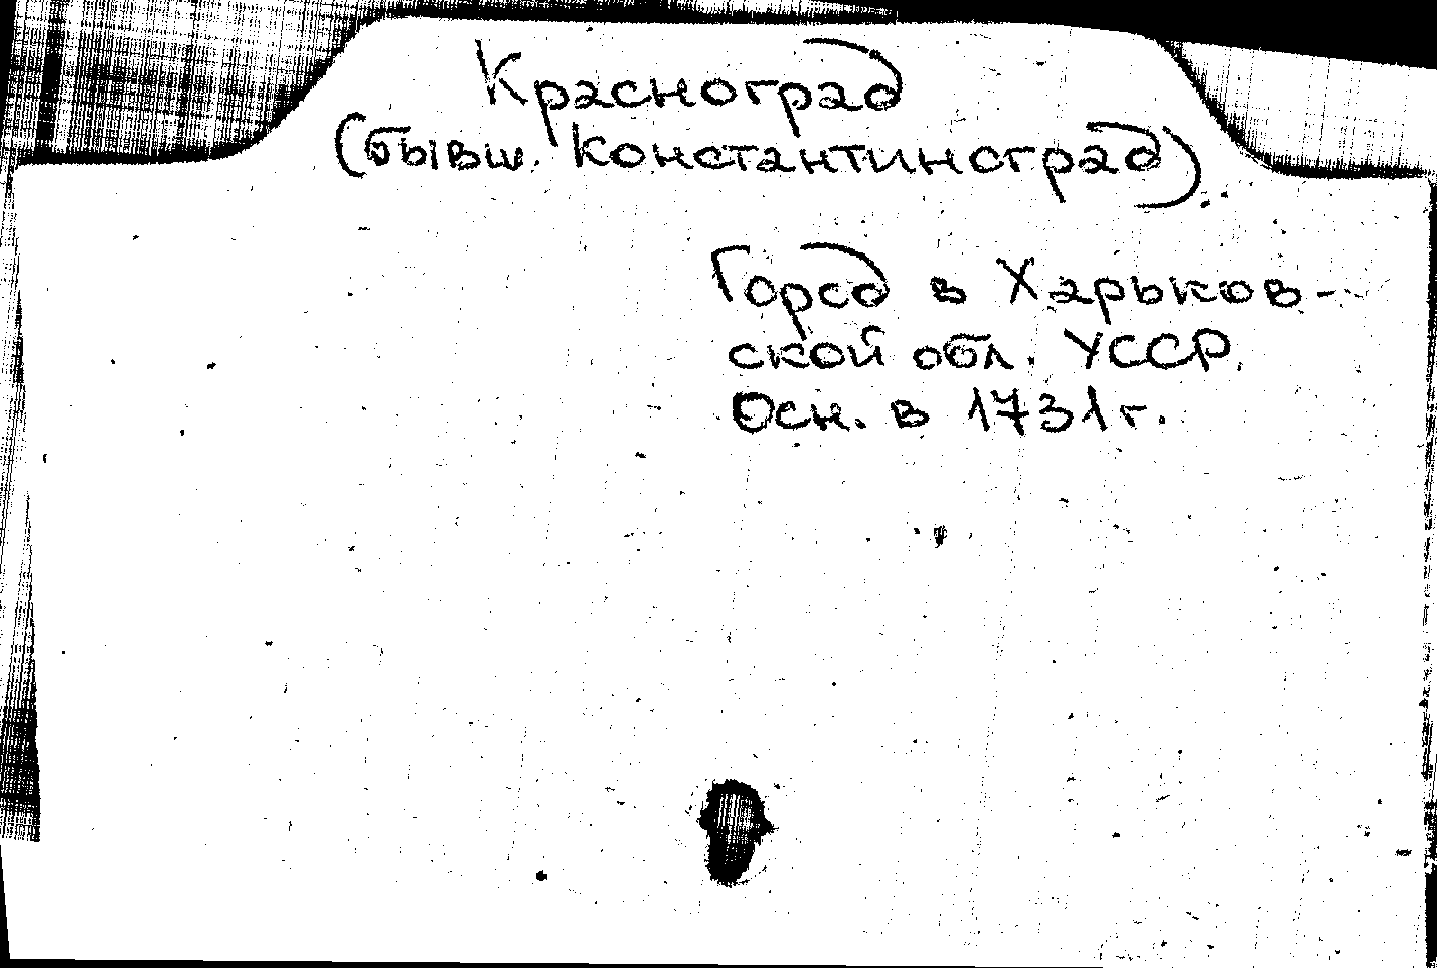 Красноград
(бывш. Константиноград)
Город в Харьков-
ской обл. УССР.
Осн. в 1731 г.